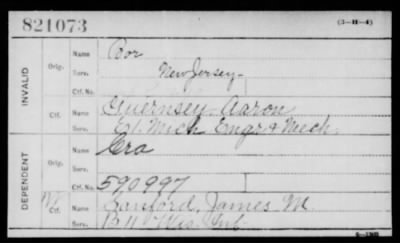 821073
(3-111-4)
INVALID
Orig.
Name Cor
Serv. New Jersey
Ctf. No.
Ctf.
Name Guernsey Aaron
Serv. E 1. Mich Engr & Mech.
DEPENDENT
Orig.
Name Era
Serv.
Ctf. No. 590997
Ctf.
Name Sanford, James M.
Serv. B 11 Wis. Inf